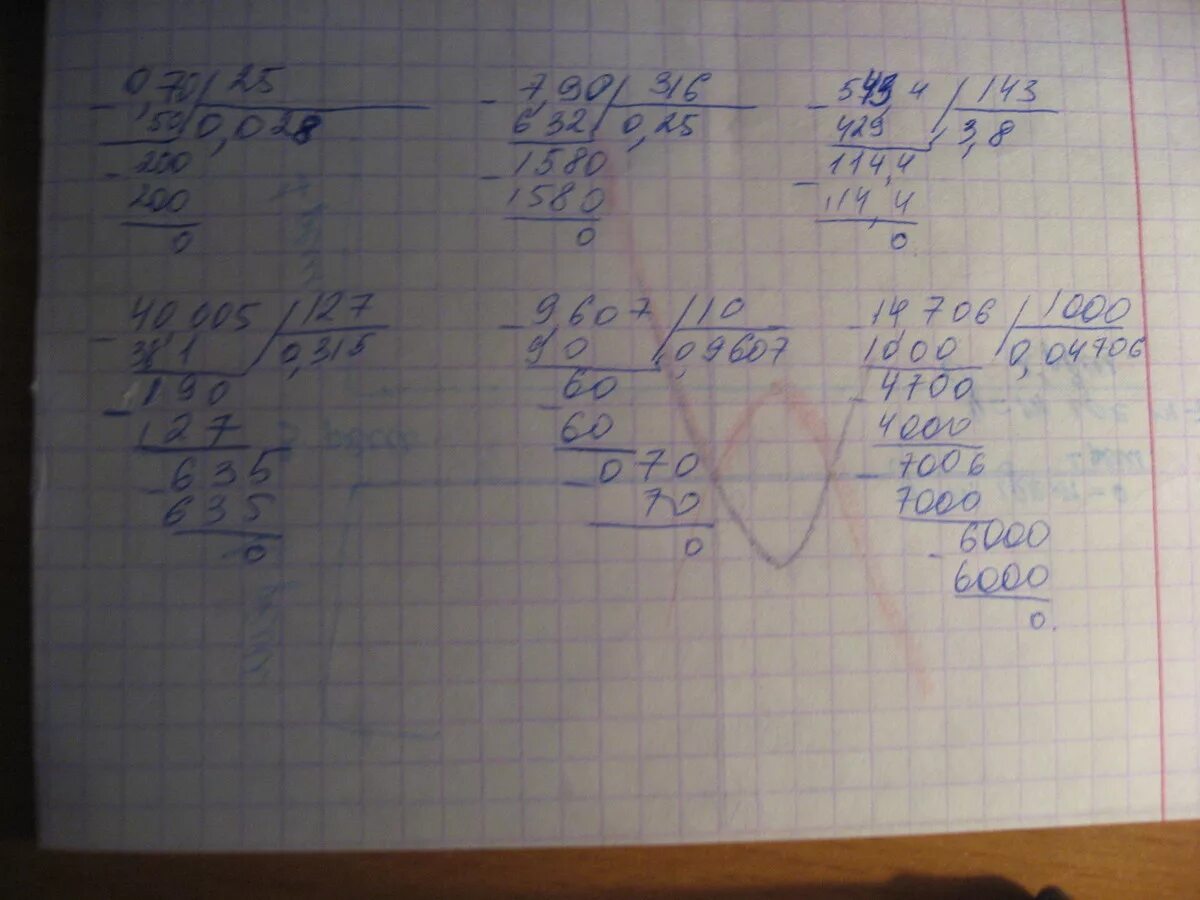 0,70 25
50 0,028
200
200
0
7,90 316
632 0,25
1580
1580
0
543,4 143
429 3,8
114,4
114,4
0
40,005 127
381 0,315
190
127
635
635
0
9,607 10
90 0,9607
60
60
070
70
0
14 706 1000
1000 0,04706
4700
4000
7006
7000
6000
6000
0